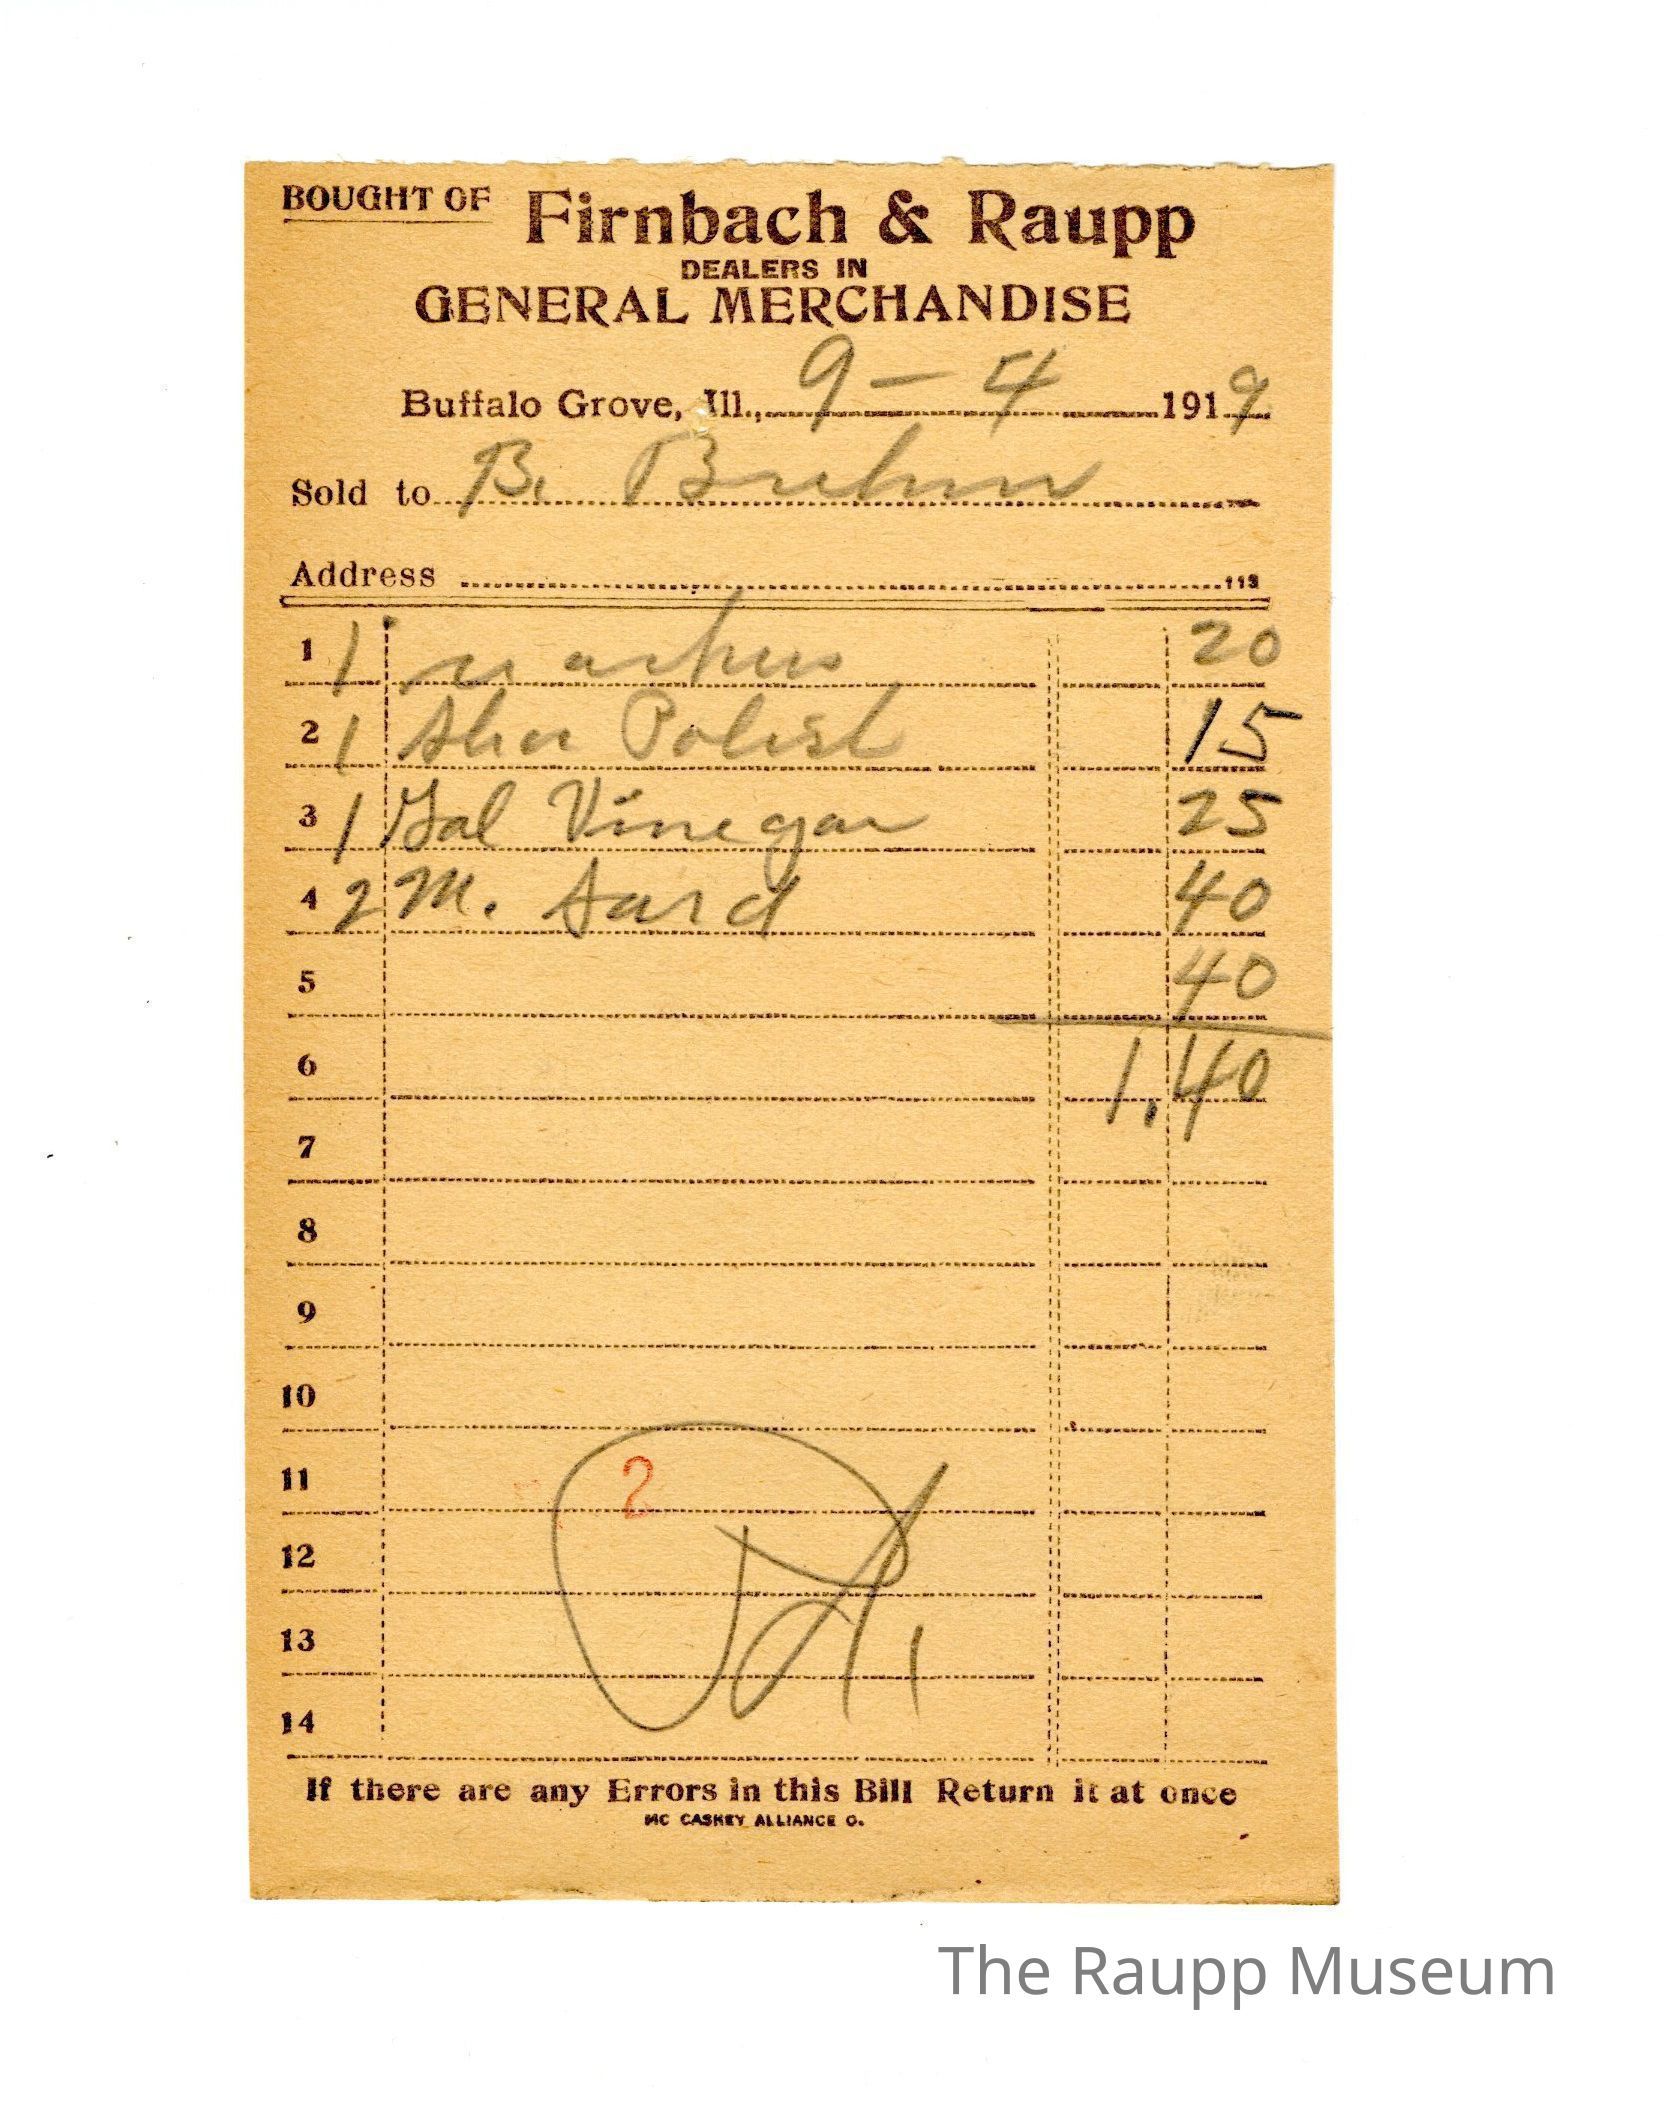 BOUGHT OF Firnbach & Raupp
DEALERS IN
GENERAL MERCHANDISE
Buffalo Grove, Ill., 9 - 4 1919
Sold to B. Bruhnn
Address 113
1 1 20
2 1 Shoe Polish 15
3 1 Gal Vinegar 25
4 2 M. Sard 40
5 40
6 1.40
7
8
9
10
11 2
12
13
14
If there are any Errors in this Bill Return it at once
MC CASKEY ALLIANCE O.
The Raupp Museum